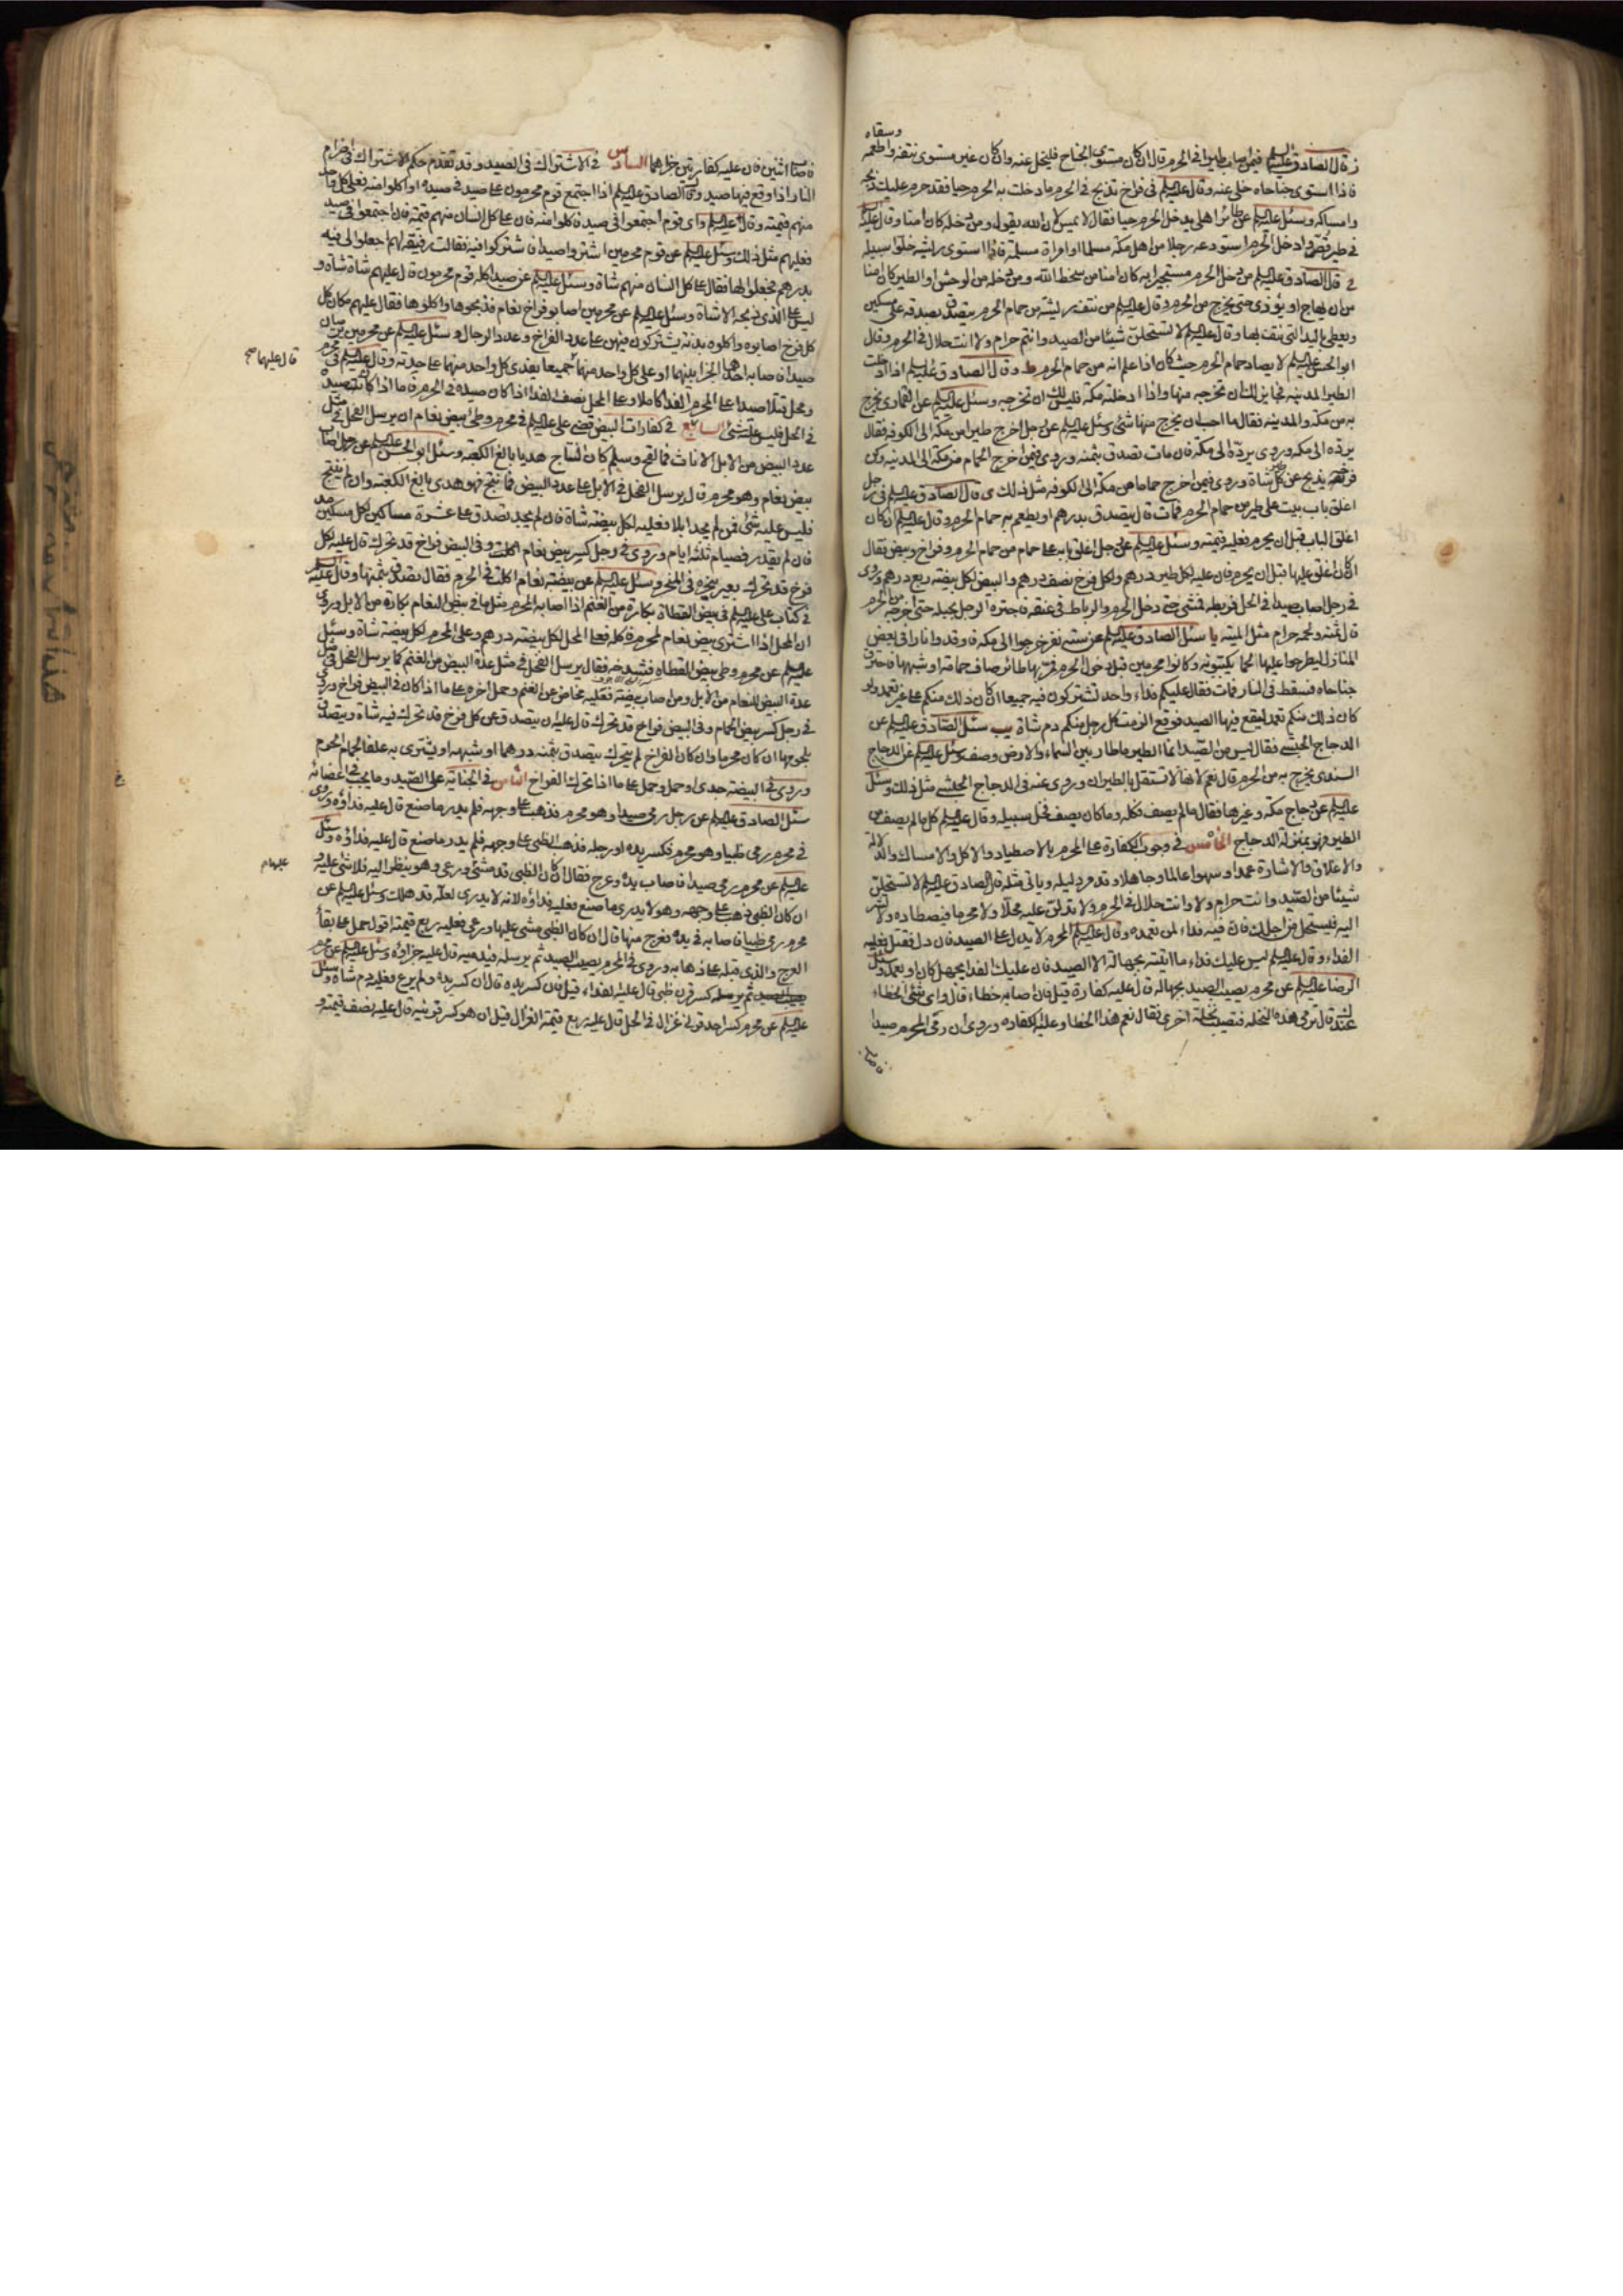 وسقاه
ز قال الصادق عليه السلام فيمن اصاب طيرا في الحرم قال ان كان مستوى الجناح فليخل عنه وان كان غير مستوى نتفه واطعمه
فاذا استوى جناحاه خلى عنه وقال عليه السلام في فراخ تذبح في الحرم ما دخلت به الحرم حيا فقد حرم عليك ذبحه
وامساكه وسئل عليه السلام عن طائر اهلى يدخل الحرم حيا فقال لا يمس لان الله يقول ومن دخله كان امنا وقال عليه
في طير قص وادخل الحرم استودعه رجلا من اهل مكة مسلما او امراة مسلمة فاذا استوى ريشه خلوا سبيله
ح قال الصادق عليه السلام من دخل الحرم مستجيرا به كان امنا من سخط الله ومن دخله من الوحش او الطير كان امنا
من ان يهاج او يؤذى حتى يخرج من الحرم وقال عليه السلام من نتف ريشة من حمام الحرم يتصدق بصدقة على مسكين
ويعطى باليد التى نتف بها وقال عليه السلام لا تستحلن شيئا من الصيد وانتم حرام ولا انت حلال في الحرم وقال
ابو الحسن عليه السلام لا يصاد حمام الحرم حيث كان اذا علم انه من حمام الحرم ط وقال الصادق عليه السلام اذا ادخلت
الطير المدينة فجايز لك ان تخرجه منها واذا ادخلته مكة فليس لك ان تخرجه وسئل عليه السلام عن القمارى يخرج
به من مكة والمدينة فقال ما احب ان يخرج منها شئ وسئل عليه السلام عن رجل اخرج طيرا من مكة الى الكوفة فقال
يرده الى مكة وروى يرده الى مكة فان مات تصدق بثمنه وروى فيمن اخرج الحمام من مكة الى المدينة
يذبح عن كل طير شاة وروى فيمن اخرج حماما من مكة الى الكوفة مثل ذلك ى قال الصادق عليه السلام في رجل
اغلق باب بيت على طير من حمام الحرم فمات قال يتصدق بدرهم او يطعم به حمام الحرم وقال عليه السلام ان كان
اغلق الباب قبل ان يحرم فعليه قيمته وسئل عليه السلام عن رجل اغلق بابه على حمام من حمام الحرم وفراخ وبيض فقال
ان كان اغلق عليها قبل ان يحرم فان عليه لكل طير درهم ولكل فرخ نصف درهم والبيض لكل بيضة ربع درهم وروى
في رجل اصاب صيدا في الحل فربطه فمشى حتى دخل الحرم والرباط في عنقه فاجتره الرجل بحبله حتى اخرجه من الحرم
قال ثمنه ولحمه حرام مثل الميتة يا سئل الصادق عليه السلام عن ستة نفر خرجوا الى مكة فاوقدوا نارا في بعض
المنازل ليطرحوا عليها لحما يكببونه وكانوا محرمين قبل دخول الحرم فمر بها طائر صاف حمامة او شبهها فاحترق
جناحاه فسقط في النار فمات فقال عليكم فداء واحد تشتركون فيه جميعا ان كان ذلك منكم على غير تعمد ولو
كان ذلك منكم تعمدا ليقع فيها الصيد فوقع الزمت كل رجل منكم دم شاة يب سئل الصادق عليه السلام عن
الدجاج الحبشى فقال ليس من الصيد انما الطير ما طار بين السماء والارض وصف وسئل عليه السلام عن الدجاج
السندى يخرج به من الحرم قال نعم لانها لا تستقل بالطيران وروى عنه في الدجاج الحبشى مثل ذلك وسئل
عليه السلام عن دجاج مكة وغيرها فقال ما لم يصف فكله وما كان يصف فخل سبيله وقال عليه السلام كل ما لم يصف من
الطير فهو بمنزلة الدجاج الخامس في وجوب الكفارة على المحرم بالاصطياد والاكل والامساك والدلالة
والاغلاق والاشارة عمدا وسهوا عالما وجاهلا وقد مر دليله وياتى مثله قال الصادق عليه السلام لا تستحلن
شيئا من الصيد وانت حرام ولا وانت حلال في الحرم ولا تدلن عليه محلا ولا محرما فيصطاده ولا تشر
اليه فيستحل من اجلك فان فيه فداء لمن تعمده وقال عليه السلام المحرم لا يدل على الصيد فان دل فقتل فعليه
الفداء وقال عليه السلام ليس عليك فداء ما اتيته بجهالة الا الصيد فان عليك الفداء بجهل كان او بعمد وسئل
الرضا عليه السلام عن محرم يصيب الصيد بجهالة قال عليه كفارة قيل فان اصابه خطاء قال واى شئ الخطاء
عندك قال ترمى هذه النخلة فتصيب نخلة اخرى فقال نعم هذا الخطا وعليه الكفارة وروى ان رمى المحرم صيدا
فاصاب
فاصاب اثنين فان عليه كفارتين جزاهما السادس في الاشتراك في الصيد وقد تقدم حكم الاشتراك في اضرام
النار اذا وقع فيها صيد وقال الصادق عليه السلام اذا اجتمع قوم محرمون على صيد في صيده او اكلوا منه فعلى كل واحد
منهم قيمته وقال عليه السلام واى قوم اجتمعوا في صيد فاكلوا منه فان على كل انسان منهم قيمته فان اجتمعوا في صيد
فعليهم مثل ذلك وسئل عليه السلام عن قوم محرمين اشتروا صيدا فاشتركوا فيه فقالت رفيقة لهم اجعلوا لى فيه
بدرهم فجعلوا لها فقال على كل انسان منهم شاة وسئل عليه السلام عن صيد اكله قوم محرمون قال عليهم شاة شاة و
ليس على الذى ذبحه الا شاة وسئل عليه السلام عن محرمين اصابوا فراخ نعام فذبحوها واكلوها فقال عليهم مكان كل
كل فرخ اصابوه واكلوه بدنة يشتركون فيهن على عدد الفراخ وعدد الرجال وسئل عليه السلام عن محرمين يرميان
صيدا فاصابه احدهما الجزا بينهما او على كل واحد منهما قال عليهما جميعا يفدى كل واحد منهما على حدته وقال عليه السلام في محرم
قال عليهما صح
ومحل قتلا صيدا على المحرم الفدا كاملا وعلى المحل نصف الفدا اذا كان صيده في الحرم فاما اذا كانت صيده
في الحل فليس عليه شئ السابع في كفارات البيض قضى على عليه السلام في محرم وطئ بيض نعام ان يرسل الفحل في مثل
عدد البيض من الابل الاناث فما لقح وسلم كان النتاج هديا بالغ الكعبة وسئل ابو الحسن عليه السلام عن رجل اصاب
بيض نعام وهو محرم قال يرسل الفحل في الابل على عدد البيض فما نتج فهو هدى بالغ الكعبة وان لم ينتج
فليس عليه شئ فمن لم يجد ابلا فعليه لكل بيضة شاة فان لم يجد تصدق على عشرة مساكين لكل مسكين مد
فان لم يقدر فصيام ثلثة ايام وروى في رجل كسر بيض نعام وفي البيض فراخ قد تحرك قال عليه لكل
فرخ قد تحرك بعير ينحره في المنحر وسئل عليه السلام عن بيضة نعام اكلت في الحرم فقال تصدق بثمنها وقال عليه السلام
في كتاب على عليه السلام في بيض القطاة بكارة من الغنم اذا اصابه المحرم مثل ما في بيض النعام بكارة من الابل وروى
ان المحل اذا اشترى بيض نعام لمحرم فاكله فعلى المحل لكل بيضة درهم وعلى المحرم لكل بيضة شاة وسئل
عليه السلام عن محرم وطى بيض القطاة فشدخه فقال يرسل الفحل في مثل عدة البيض من الغنم كما يرسل الفحل في مثل
عدة البيض للنعام من الابل ومن اصاب بيضة فعليه مخاض من الغنم وحمل اخره على ما اذا كان في البيض فراخ وروى
في رجل كسر بيض الحمام وفي البيض فراخ قد تحرك قال عليه ان يتصدق عن كل فرخ قد تحرك فيه شاة ويتصدق
بلحومها ان كان محرما وان كان الفراخ لم يتحرك يتصدق بثمنه درهما او شبهه او يشترى به علفا لحمام الحرم
وروى في البيضة جدى او حمل وحمل على ما اذا تحرك الفراخ الثامن في الجناية على الصيد وما يجب في اعضائه
سئل الصادق عليه السلام عن رجل رمى صيدا وهو محرم فذهب على وجهه فلم يدر ما صنع قال عليه فداؤه وروى
في محرم رمى ظبيا وهو محرم فكسر يده او رجله فذهب الظبى على وجهه فلم يدر ما صنع قال عليه فداؤه وسئل
عليه السلام عن محرم رمى صيدا فاصاب يده وعرج فقال ان كان الظبى قد مشى ورعى وهو ينظر اليه فلا شئ عليه و
ان كان الظبى ذهب على وجهه وهو لا يدرى ما صنع فعليه فداؤه لانه لا يدرى لعله قد هلك وسئل عليه السلام عن
محرم رمى ظبيا فاصابه في يده فعرج منها قال ان كان الظبى مشى عليها ورعى فعليه ربع قيمته اقول حمل على بقاء
العرج والذى قبله على ذهابه وروى في المحرم يصيب الصيد ثم يرسله فيدميه قال عليه جزاؤه وسئل عليه السلام عن محرم
كسر قرن ظبى قال عليه الفداء قيل فان كسر يده قال ان كسر يده ولم يرع فعليه دم شاة وسئل
عليه السلام عن محرم كسر احد قرنى غزال في الحل قال عليه ربع قيمة الغزال قيل ان هو كسر قرنيه قال عليه نصف قيمته و